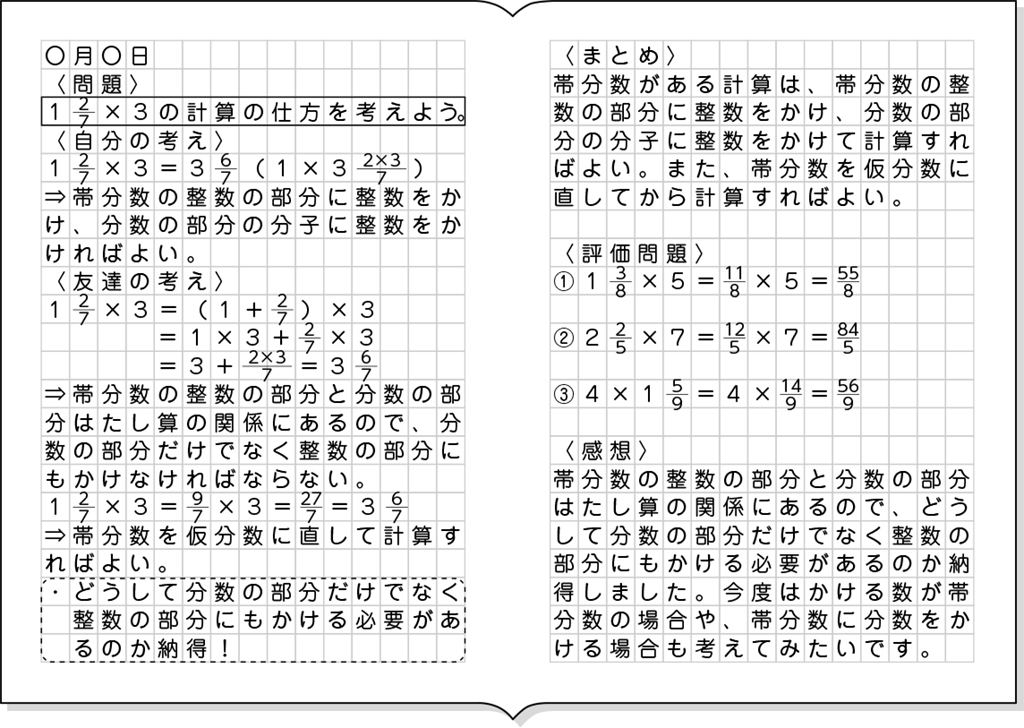 〇月〇日
〈問題〉
1 2/7 × 3 の計算の仕方を考えよう。
〈自分の考え〉
1 2/7 × 3 = 3 6/7 ( 1 × 3 2×3/7 )
⇒帯分数の整数の部分に整数をか
け、分数の部分の分子に整数をか
ければよい。
〈友達の考え〉
1 2/7 × 3 = ( 1 + 2/7 ) × 3
= 1 × 3 + 2/7 × 3
= 3 + 2×3/7 = 3 6/7
⇒帯分数の整数の部分と分数の部
分はたし算の関係にあるので、分
数の部分だけでなく整数の部分に
もかけなければならない。
1 2/7 × 3 = 9/7 × 3 = 27/7 = 3 6/7
⇒帯分数を仮分数に直して計算す
ればよい。
・どうして分数の部分だけでなく
整数の部分にもかける必要があ
るのか納得！
〈まとめ〉
帯分数がある計算は、帯分数の整
数の部分に整数をかけ、分数の部
分の分子に整数をかけて計算すれ
ばよい。また、帯分数を仮分数に
直してから計算すればよい。
〈評価問題〉
① 1 3/8 × 5 = 11/8 × 5 = 55/8
② 2 2/5 × 7 = 12/5 × 7 = 84/5
③ 4 × 1 5/9 = 4 × 14/9 = 56/9
〈感想〉
帯分数の整数の部分と分数の部分
はたし算の関係にあるので、どう
して分数の部分だけでなく整数の
部分にもかける必要があるのか納
得しました。今度はかける数が帯
分数の場合や、帯分数に分数をか
ける場合も考えてみたいです。